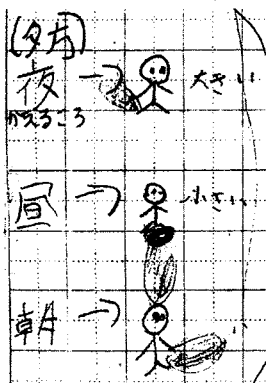 (夕方)
夜 → 大きい
かえるころ
昼 → 小さい
朝 → い